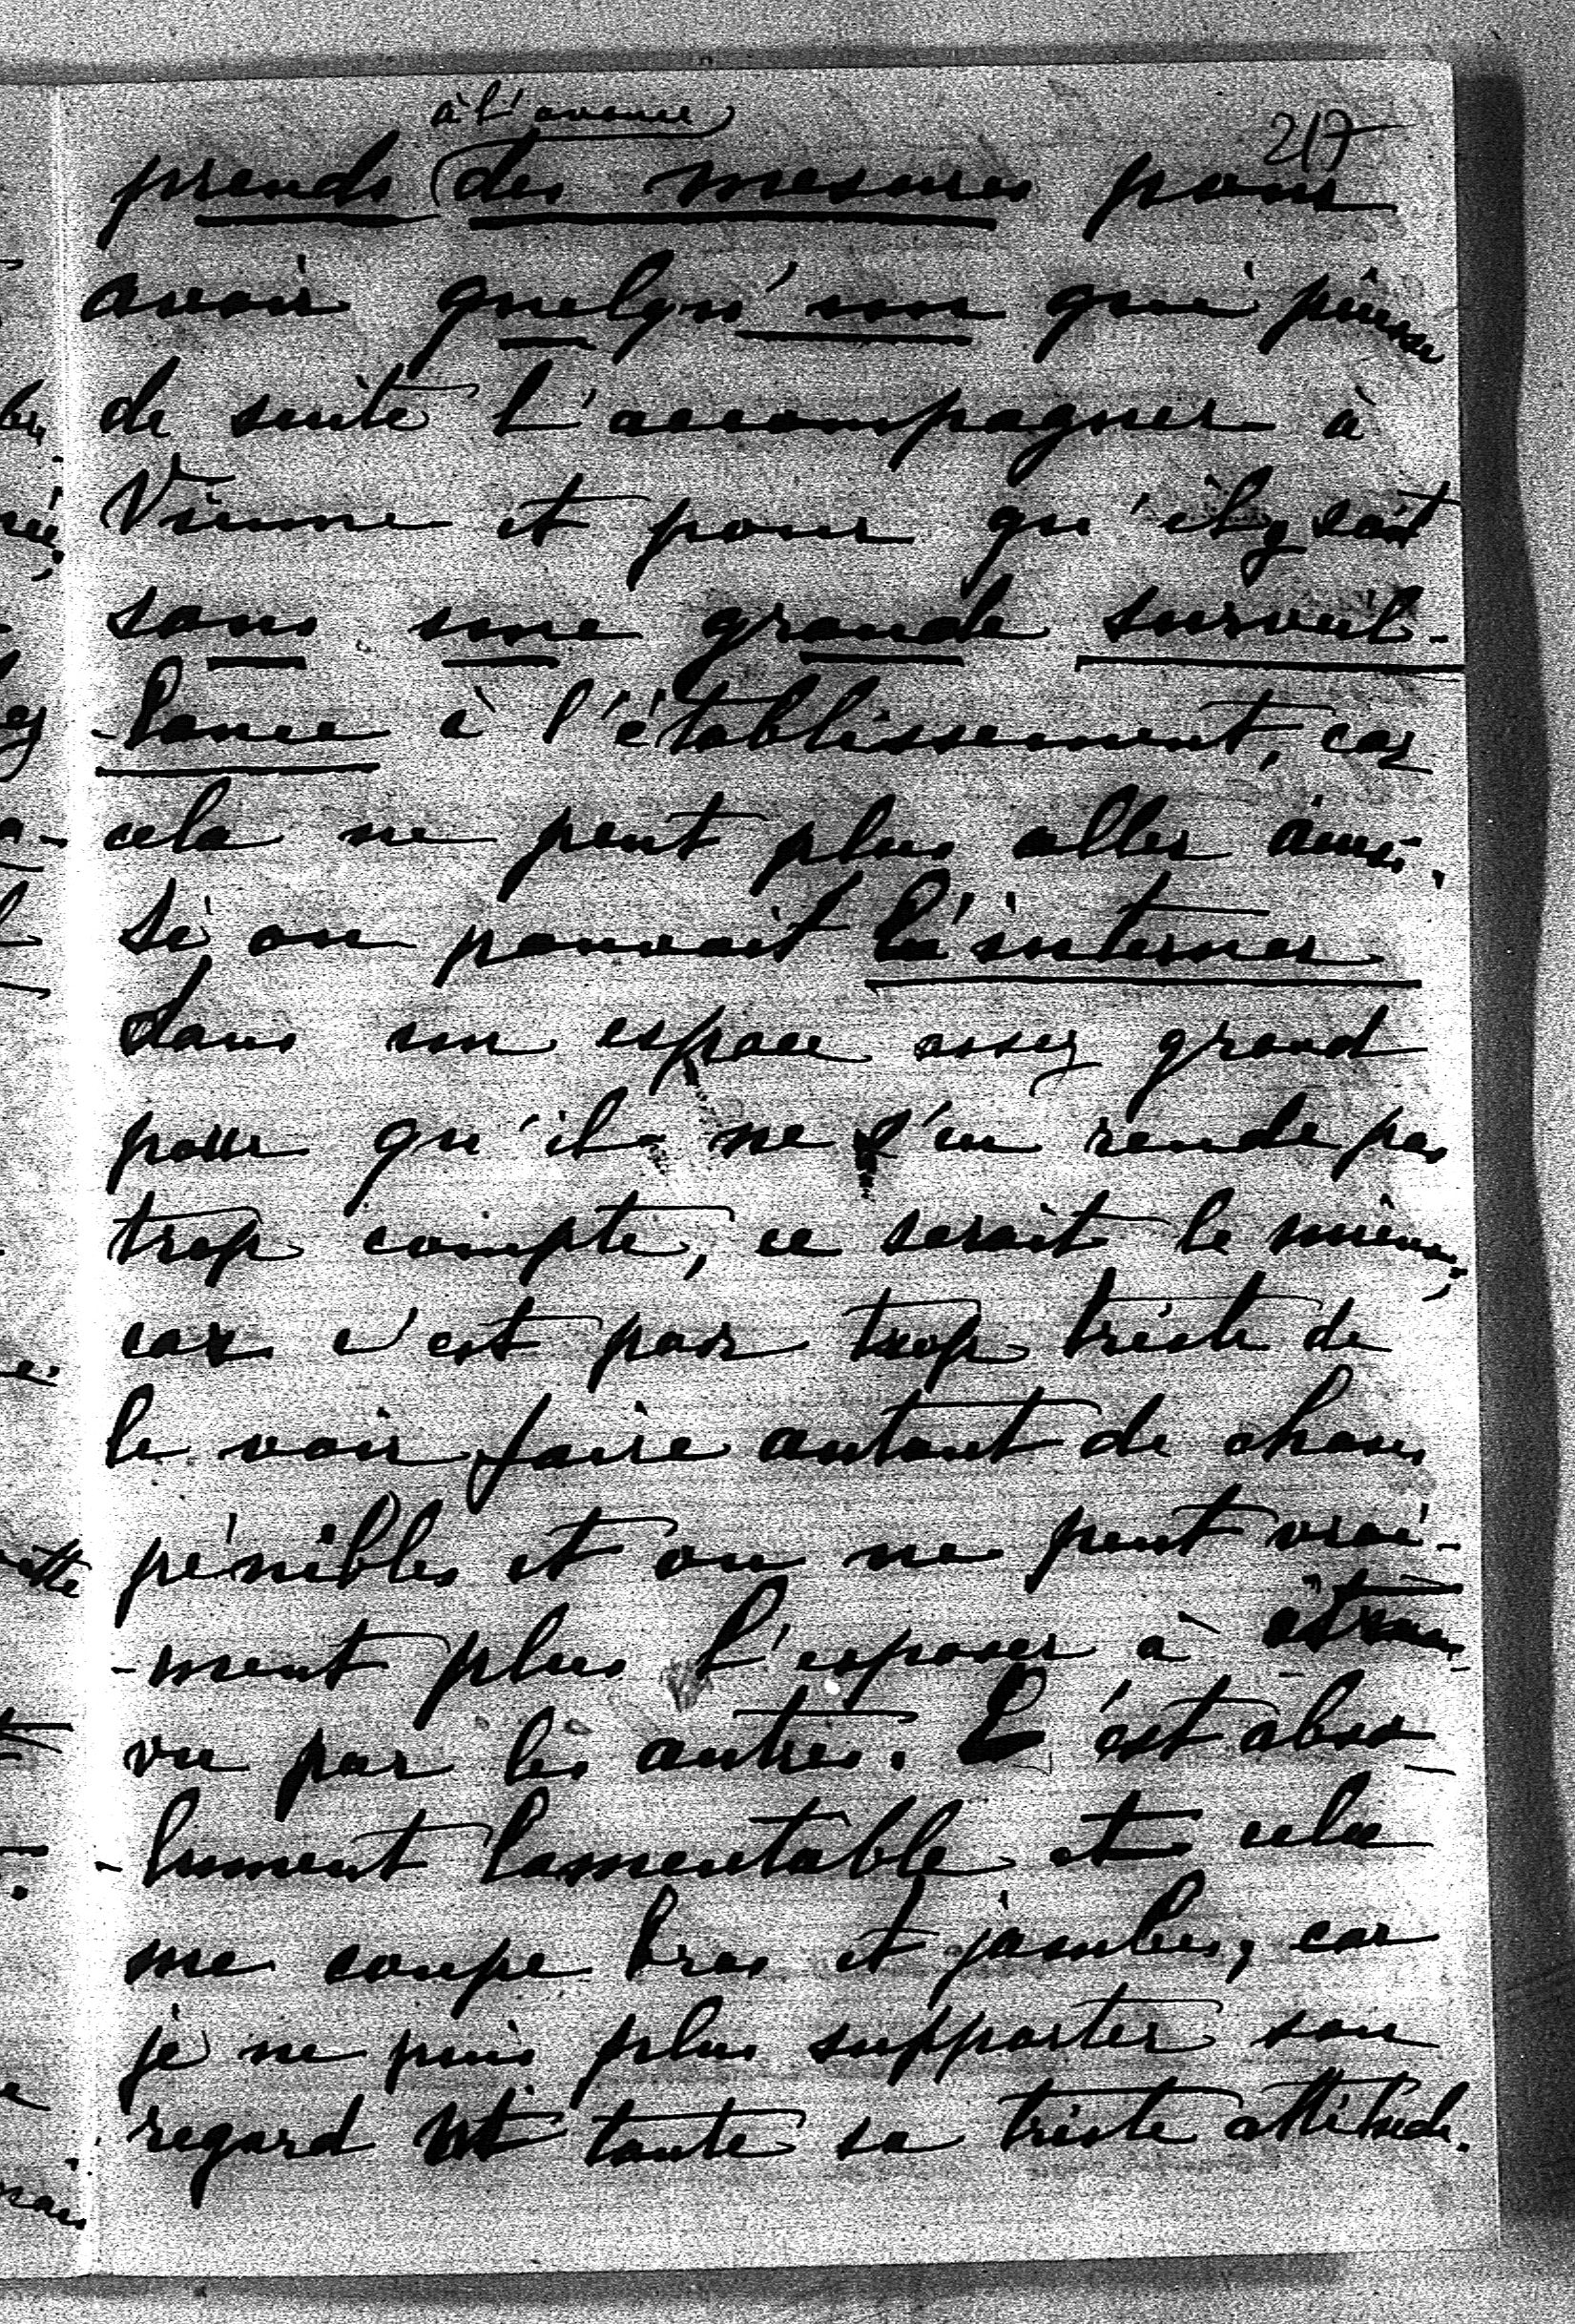 à l'avance
217
prends des mesures pour
avoir quelqu'un qui puisse
de suite l'accompagner à
Vienne et pour qu'il y soit
sous une grande surveil-
-lance à l'établissement, car
cela ne peut plus aller ainsi.
Si on pouvait l'interner
dans un espace assez grand
pour qu'il ne s'en rende pas
trop compte, ce serait le mieux;
car c'est par trop triste de
le voir faire autant de choses
pénibles et on ne peut vrai-
-ment plus l'exposer à être
vu par les autres. C'est abso-
-lument lamentable et cela
me coupe bras et jambes, car
je ne puis plus supporter son
regard et toute sa triste attitude.